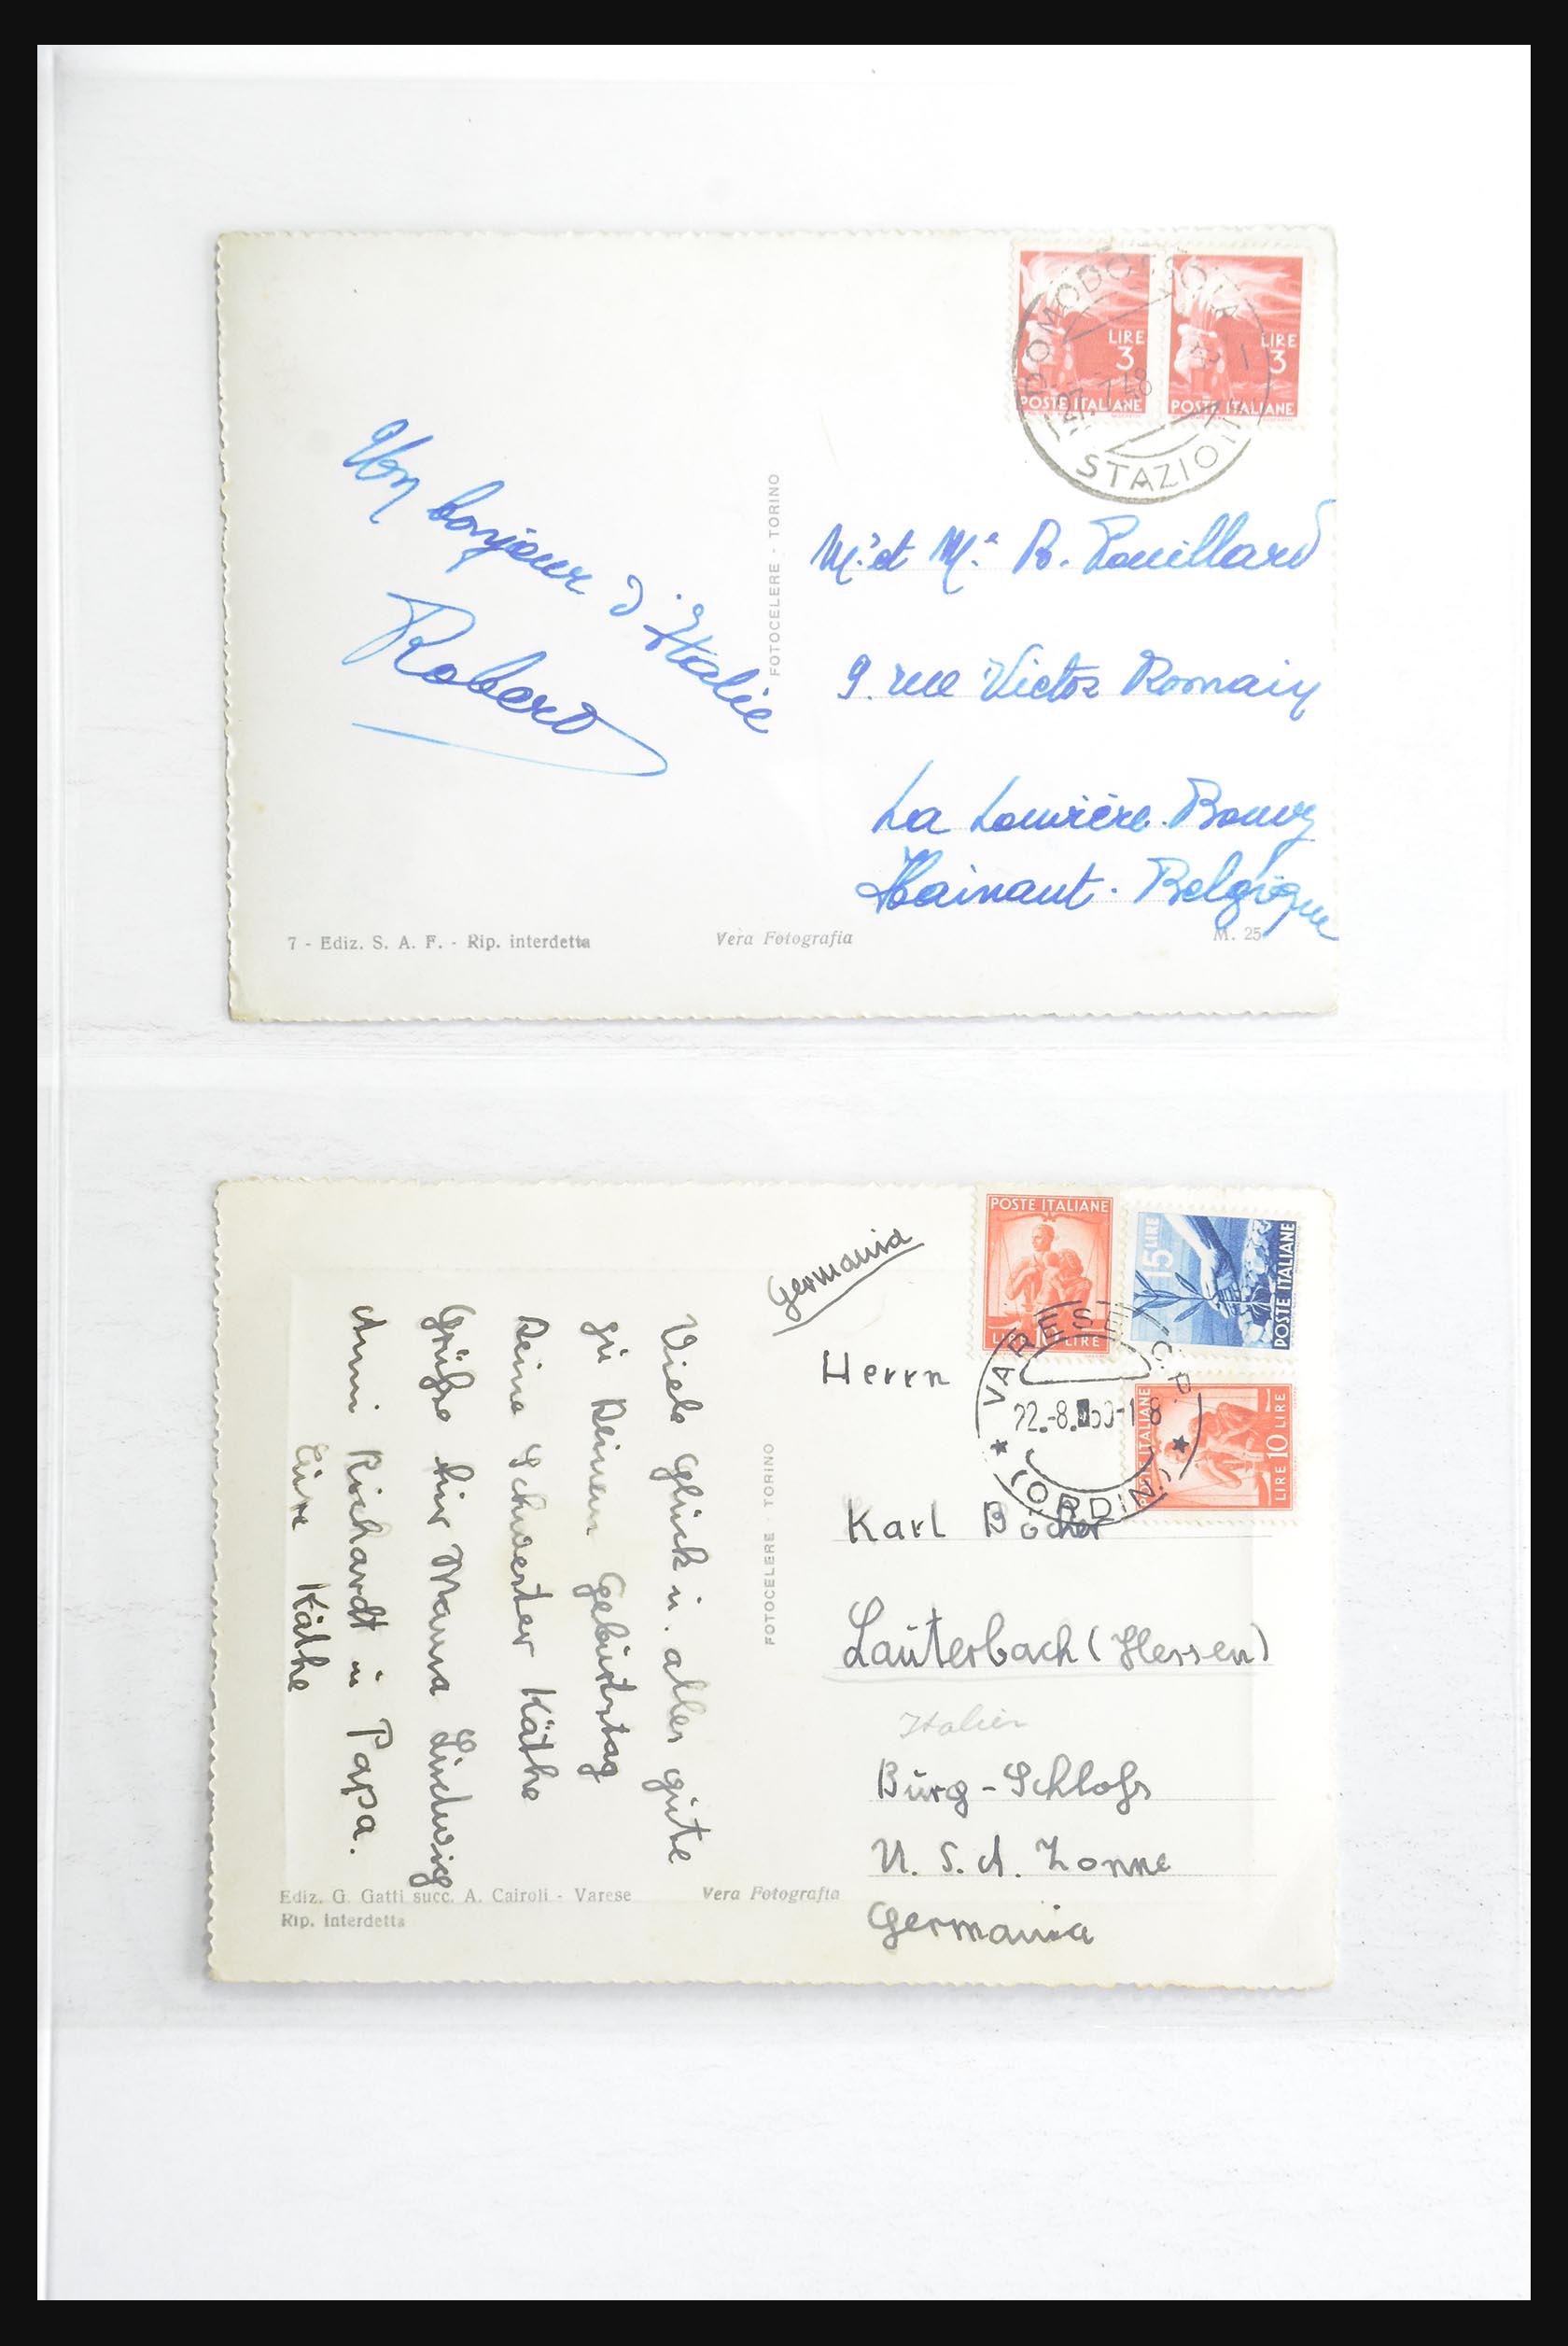 DOMODOSSOLA
27.7.48
STAZIO
LIRE 3
POSTE ITALIANE
LIRE 3
POSTE ITALIANE
Un bonjour d'Italie
Robert
FOTOCELERE - TORINO
Mr. et Me. R. Pouillard
9. rue Victor Romain
La Louvière. Bouvy
Hainaut. Belgique
7 - Ediz. S. A. F. - Rip. interdetta
Vera Fotografia
M. 25
POSTE ITALIANE
LIRE 10 LIRE
15 LIRE
POSTE ITALIANE
POSTE ITALIANE
LIRE 10 LIRE
VARESE C.P.
22.-8. 50-18
(ORDIN.)
Germania
Herrn
Karl Böcher
Lauterbach (Hessen)
Italien
Burg-Schloß
U. S. A. Zonne
Germania
Viele Glück u. alles gute
zu Deinem Geburtstag
Deine Schwester Käthe
Grüße hir Mama Ludwig
Anni Richardt u Papa.
Eure Käthe
FOTOCELERE - TORINO
Ediz. G. Gatti succ. A. Cairoli - Varese
Rip. interdetta
Vera Fotografia